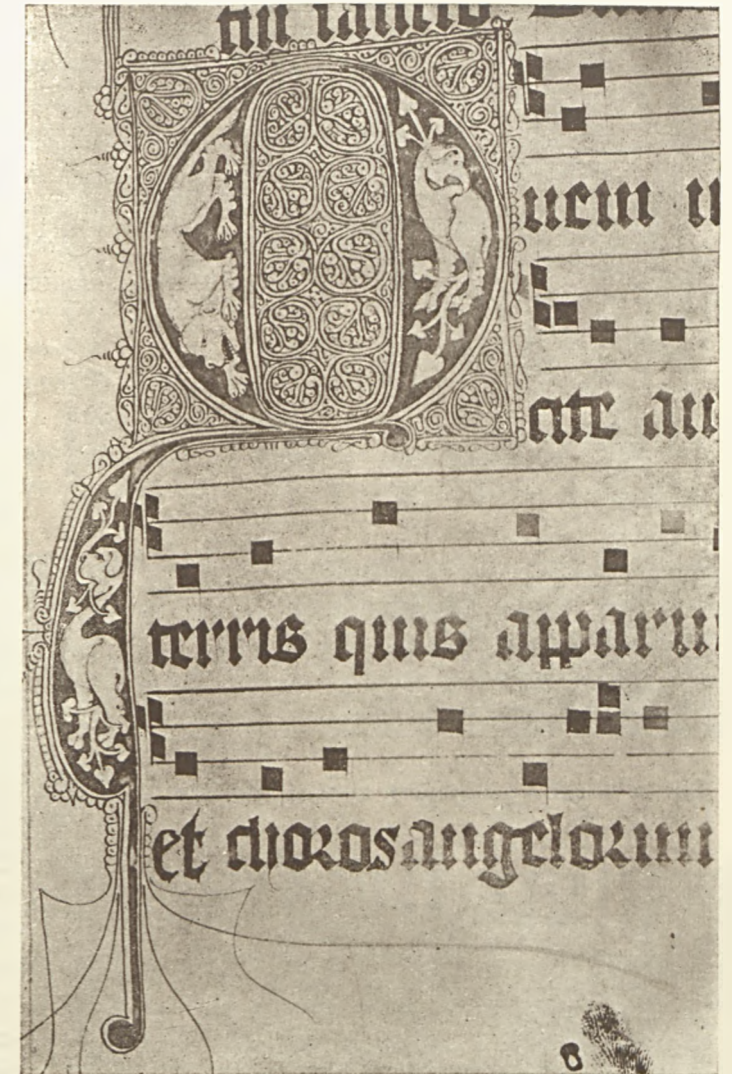 Quem
cite an
terris quis apparu
et choros angelorum